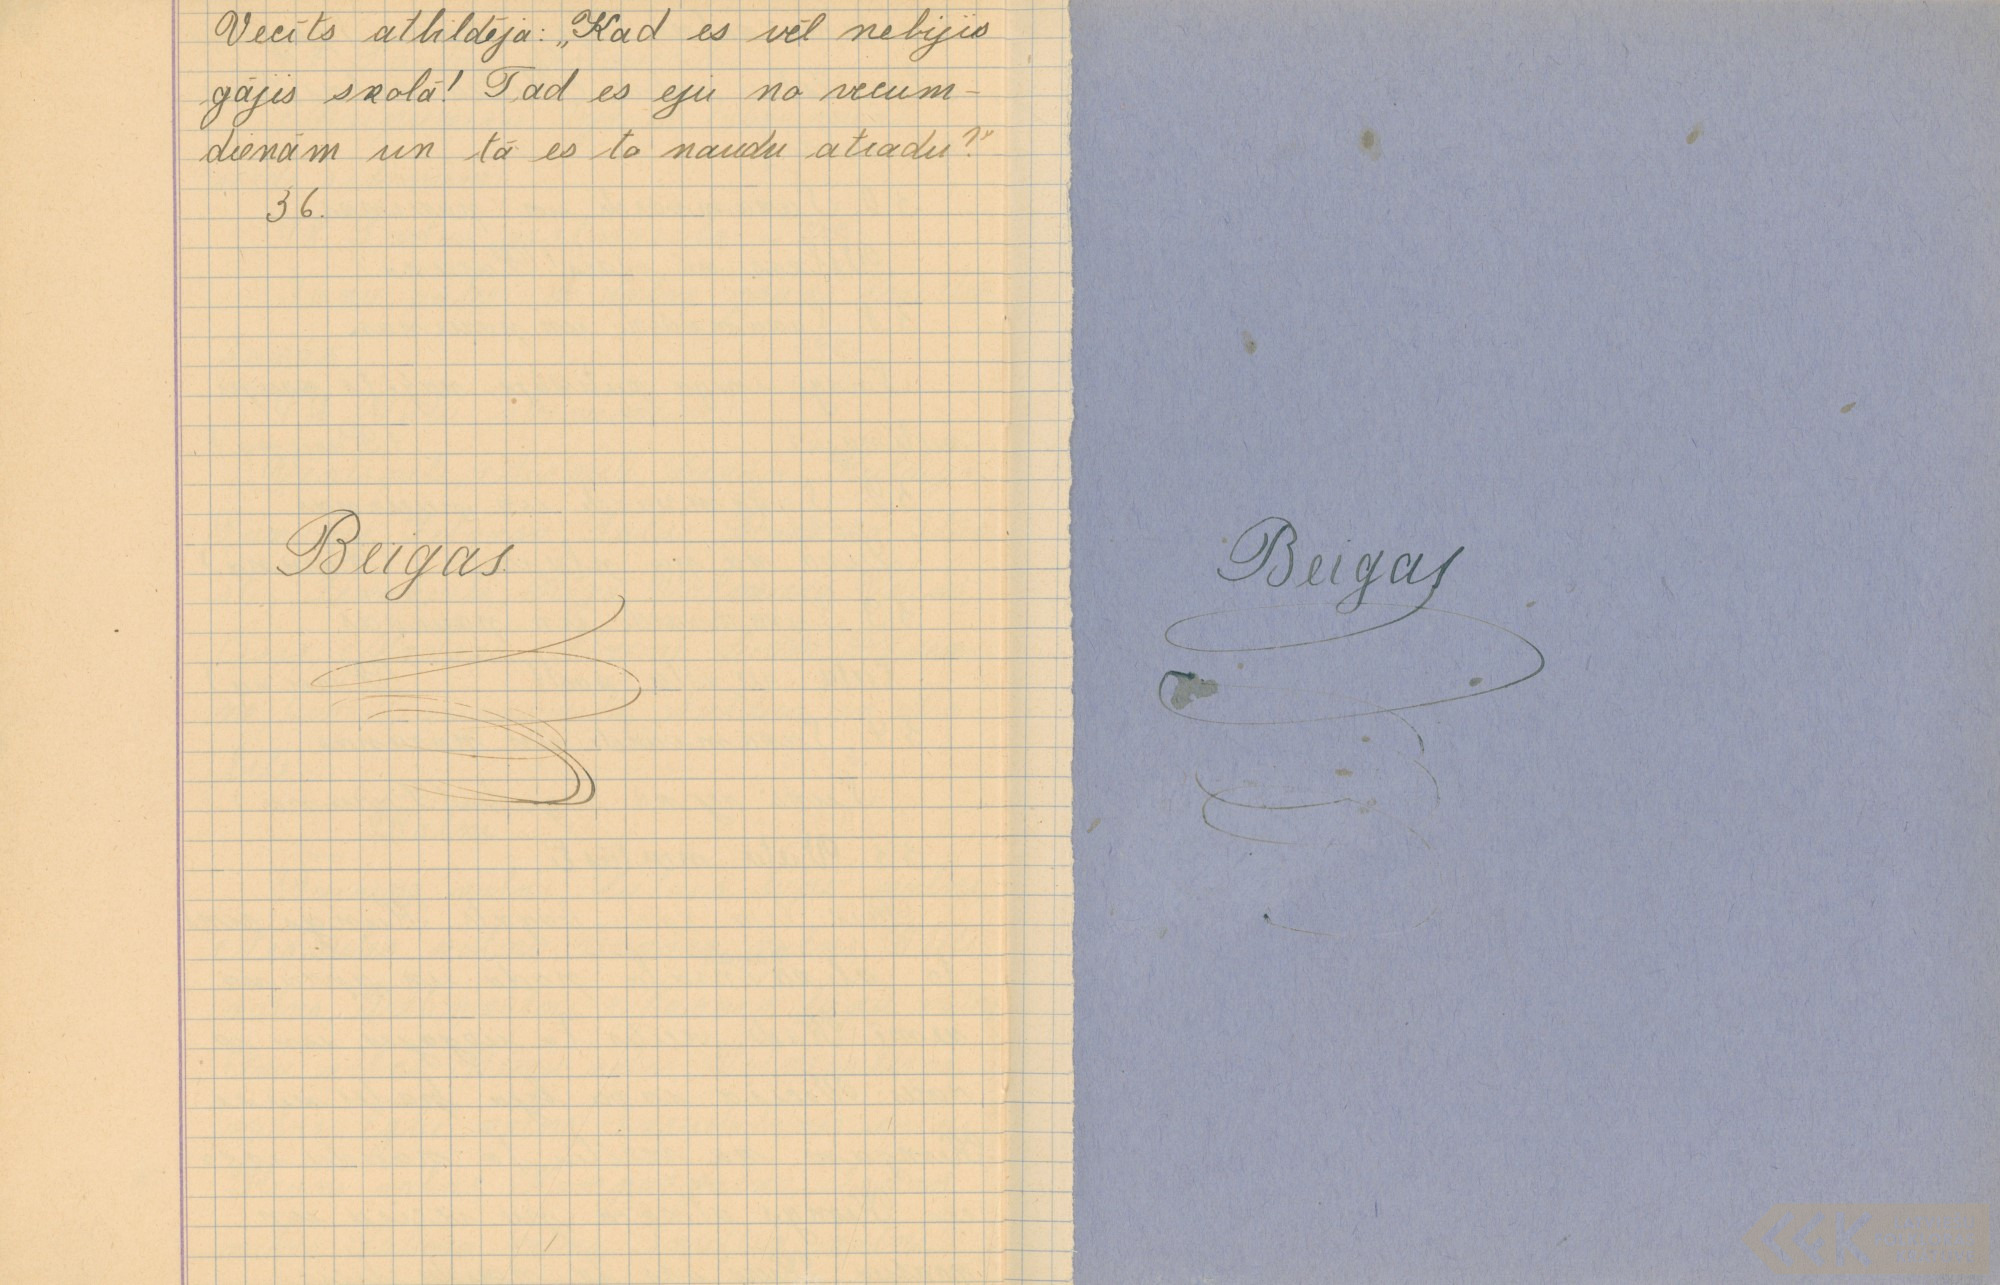 Vecīts atbildēja: „Kad es vēl nebijis
gājis skolā! Tad es eju no vecum-
dienām un tā es to naudu atradu?"
36.
Beigas
Beigas